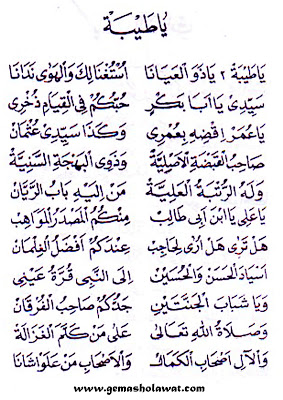 يَاطَيْبَةْ
يَاطَيْبَةْ ٢ يَاذَوَ الْعَيَانَا اُشْتَغْنَالِكْ وَالْهَوٰى نَدَانَا
سَيِّدِىْ يَا اَبَا بَكْرٍ حُبُّكُمْ فِى الْقِيَامِ ذُخْرِى
يَاعُمَرْ اِقْضِهِ بِعُمْرِى وَكَذَا سَيِّدِىْ عُثْمَانْ
صَاحِبُ الْقَبْضَةِ الْاَصِلِيَّةْ وَذَوِى الْبَهْجَةِ السَّنِيَّةْ
وَلَهُ الرُّتْبَةُ الْعَلِيَّةْ مَنْ اِلَيْهِ بَابُ الرَّيَّانْ
يَاعَلِى يَا ابْنَ اَبِى طَالِبْ مِنْكُمُ الْمَصْدَرُ الْمَوَاهِبْ
هَلْ تَرٰى هَلْ اُرٰى لِحَاجِبْ عِنْدَكُمْ اَفْضَلُ الْغِلْمَانْ
اَسْيَادِ الْحَسَنْ وَالْحُسَيْنْ اِلَى النَّبِى قُرَّةُ عَيْنِى
وَيَا شَبَابَ الْجَنَّتَيْنِ جَدُّكُمْ صَاحِبُ الْفُرْقَانْ
وَصَلَاةُ اللّٰهِ تَعَالٰى عَلٰى مَنْ كَلَّمَ الْغَزَالَةْ
وَالْاٰلِ اَصْحَابِ الْكَمَالْ وَالْاَصْحَابِ مَنْ عَلَوْاشَانَا
www.gemasholawat.com